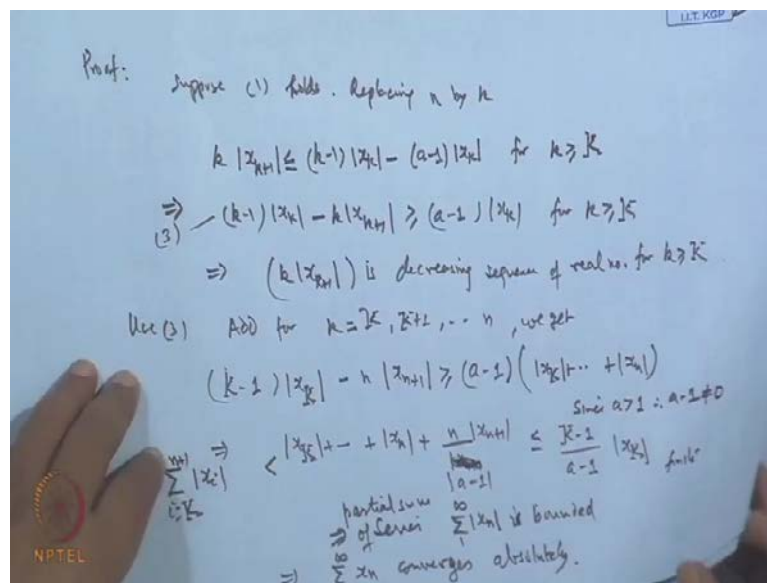 I.I.T. KGP
Proof:
Suppose (1) holds. Replacing n by k
k |x_{k+1}| ≤ (k-1) |x_k| - (a-1) |x_k| for k ≥ K
⇒ (k-1) |x_k| - k |x_{k+1}| ≥ (a-1) |x_k| for k ≥ K
(3)
⇒ (k |x_{k+1}|) is decreasing sequence of real no. for k ≥ K
Use (3) Add for k = K, K+1, .. n, we get
(K-1) |x_K| - n |x_{n+1}| ≥ (a-1) (|x_K| + .. + |x_n|)
Since a>1 ∴ a-1≠0
∑_{i=K}^{n+1} |x_i| ⇒ < |x_K| + -- + |x_n| + n |x_{n+1}| / |a-1| ≤ (K-1)/(a-1) |x_K| finite
partial sum
⇒ of Series ∑_1^∞ |x_n| is bounded
⇒ ∑^∞ x_n converges absolutely.
NPTEL